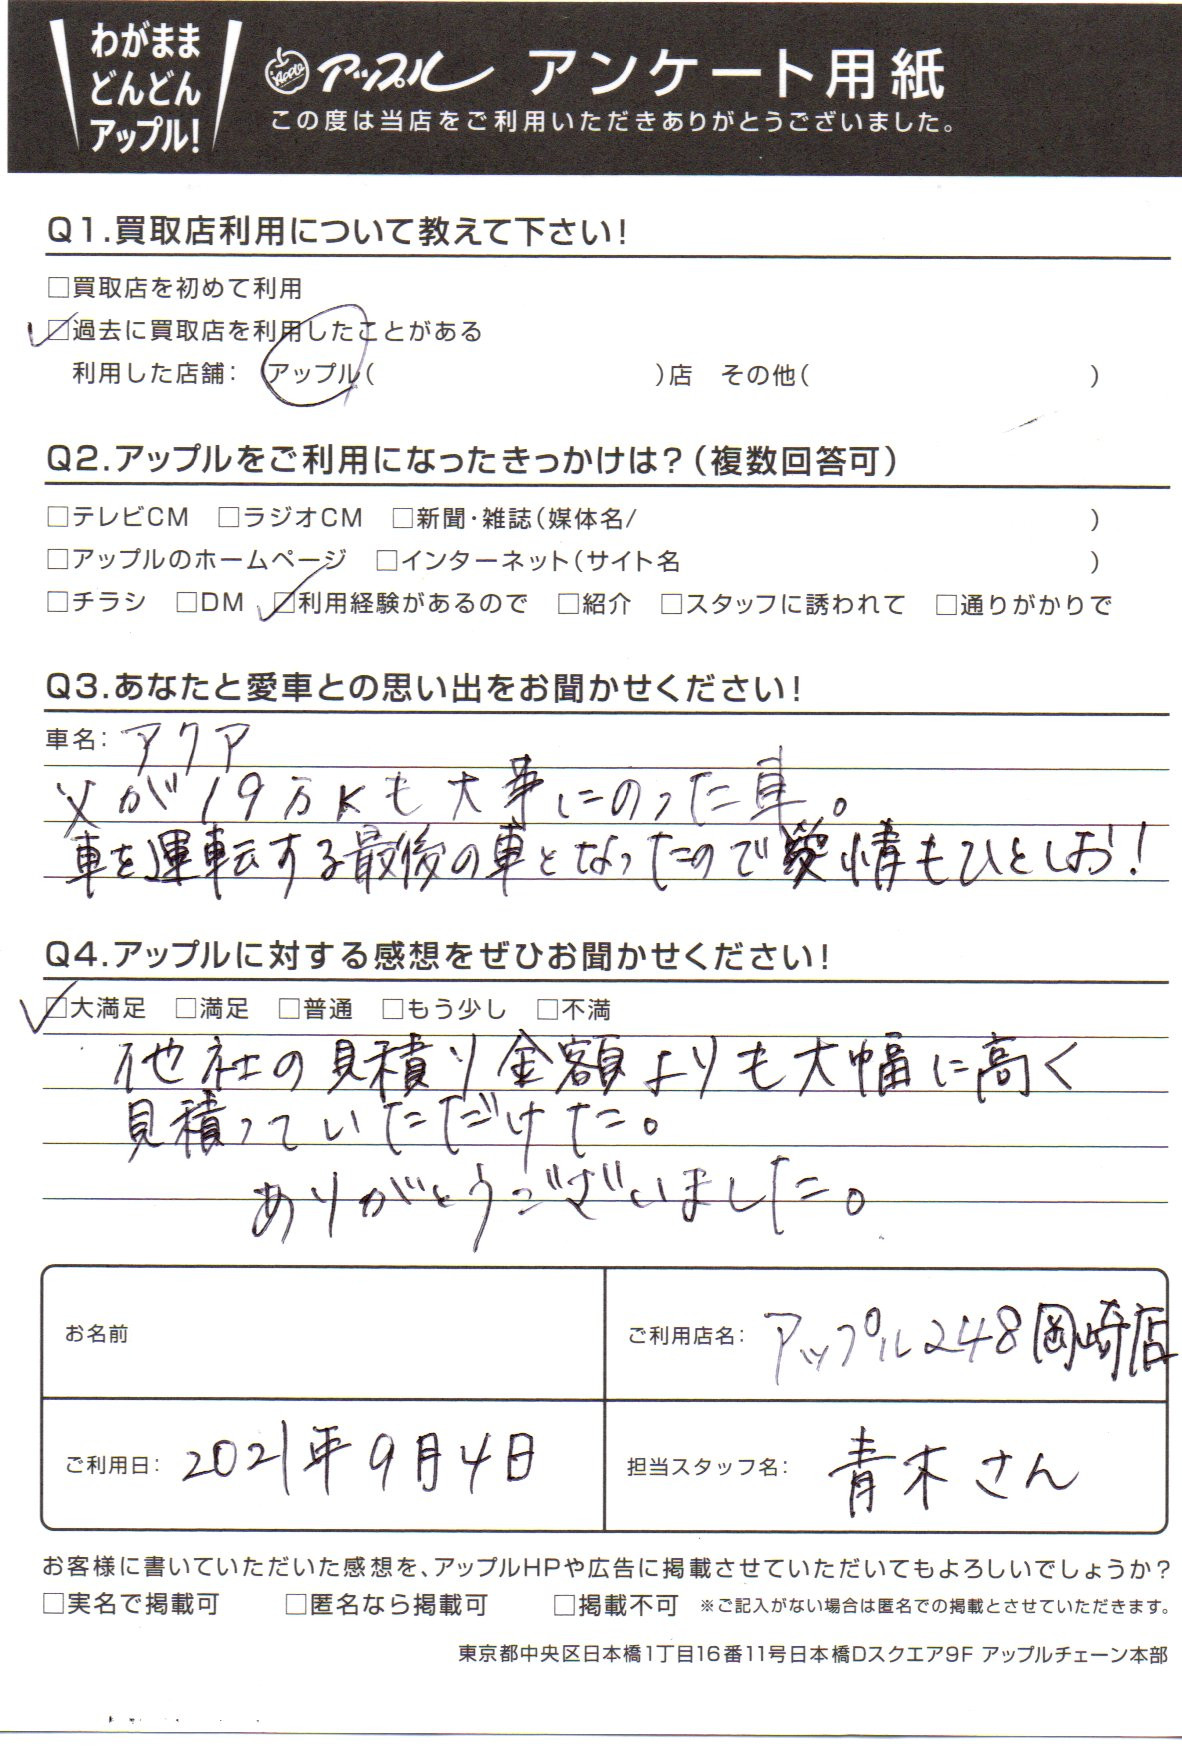 わがまま
どんどん
アップル!
Apple アップル アンケート用紙
この度は当店をご利用いただきありがとうございました。
Q1.買取店利用について教えて下さい!
□買取店を初めて利用
☑過去に買取店を利用したことがある
利用した店舗: アップル( )店 その他( )
Q2.アップルをご利用になったきっかけは?(複数回答可)
□テレビCM □ラジオCM □新聞・雑誌(媒体名/ )
□アップルのホームページ □インターネット(サイト名 )
□チラシ □DM ☑利用経験があるので □紹介 □スタッフに誘われて □通りがかりで
Q3.あなたと愛車との思い出をお聞かせください!
車名: アクア
父が19万Kも大事にのった車。
車を運転する最後の車となったので愛情もひとしお!
Q4.アップルに対する感想をぜひお聞かせください!
☑大満足 □満足 □普通 □もう少し □不満
他社の見積り金額よりも大幅に高く
見積っていただけた。
ありがとうございました。
お名前
ご利用店名: アップル248岡崎店
ご利用日: 2021年9月4日
担当スタッフ名: 青木さん
お客様に書いていただいた感想を、アップルHPや広告に掲載させていただいてもよろしいでしょうか?
□実名で掲載可 □匿名なら掲載可 □掲載不可 ※ご記入がない場合は匿名での掲載とさせていただきます。
東京都中央区日本橋1丁目16番11号日本橋Dスクエア9F アップルチェーン本部